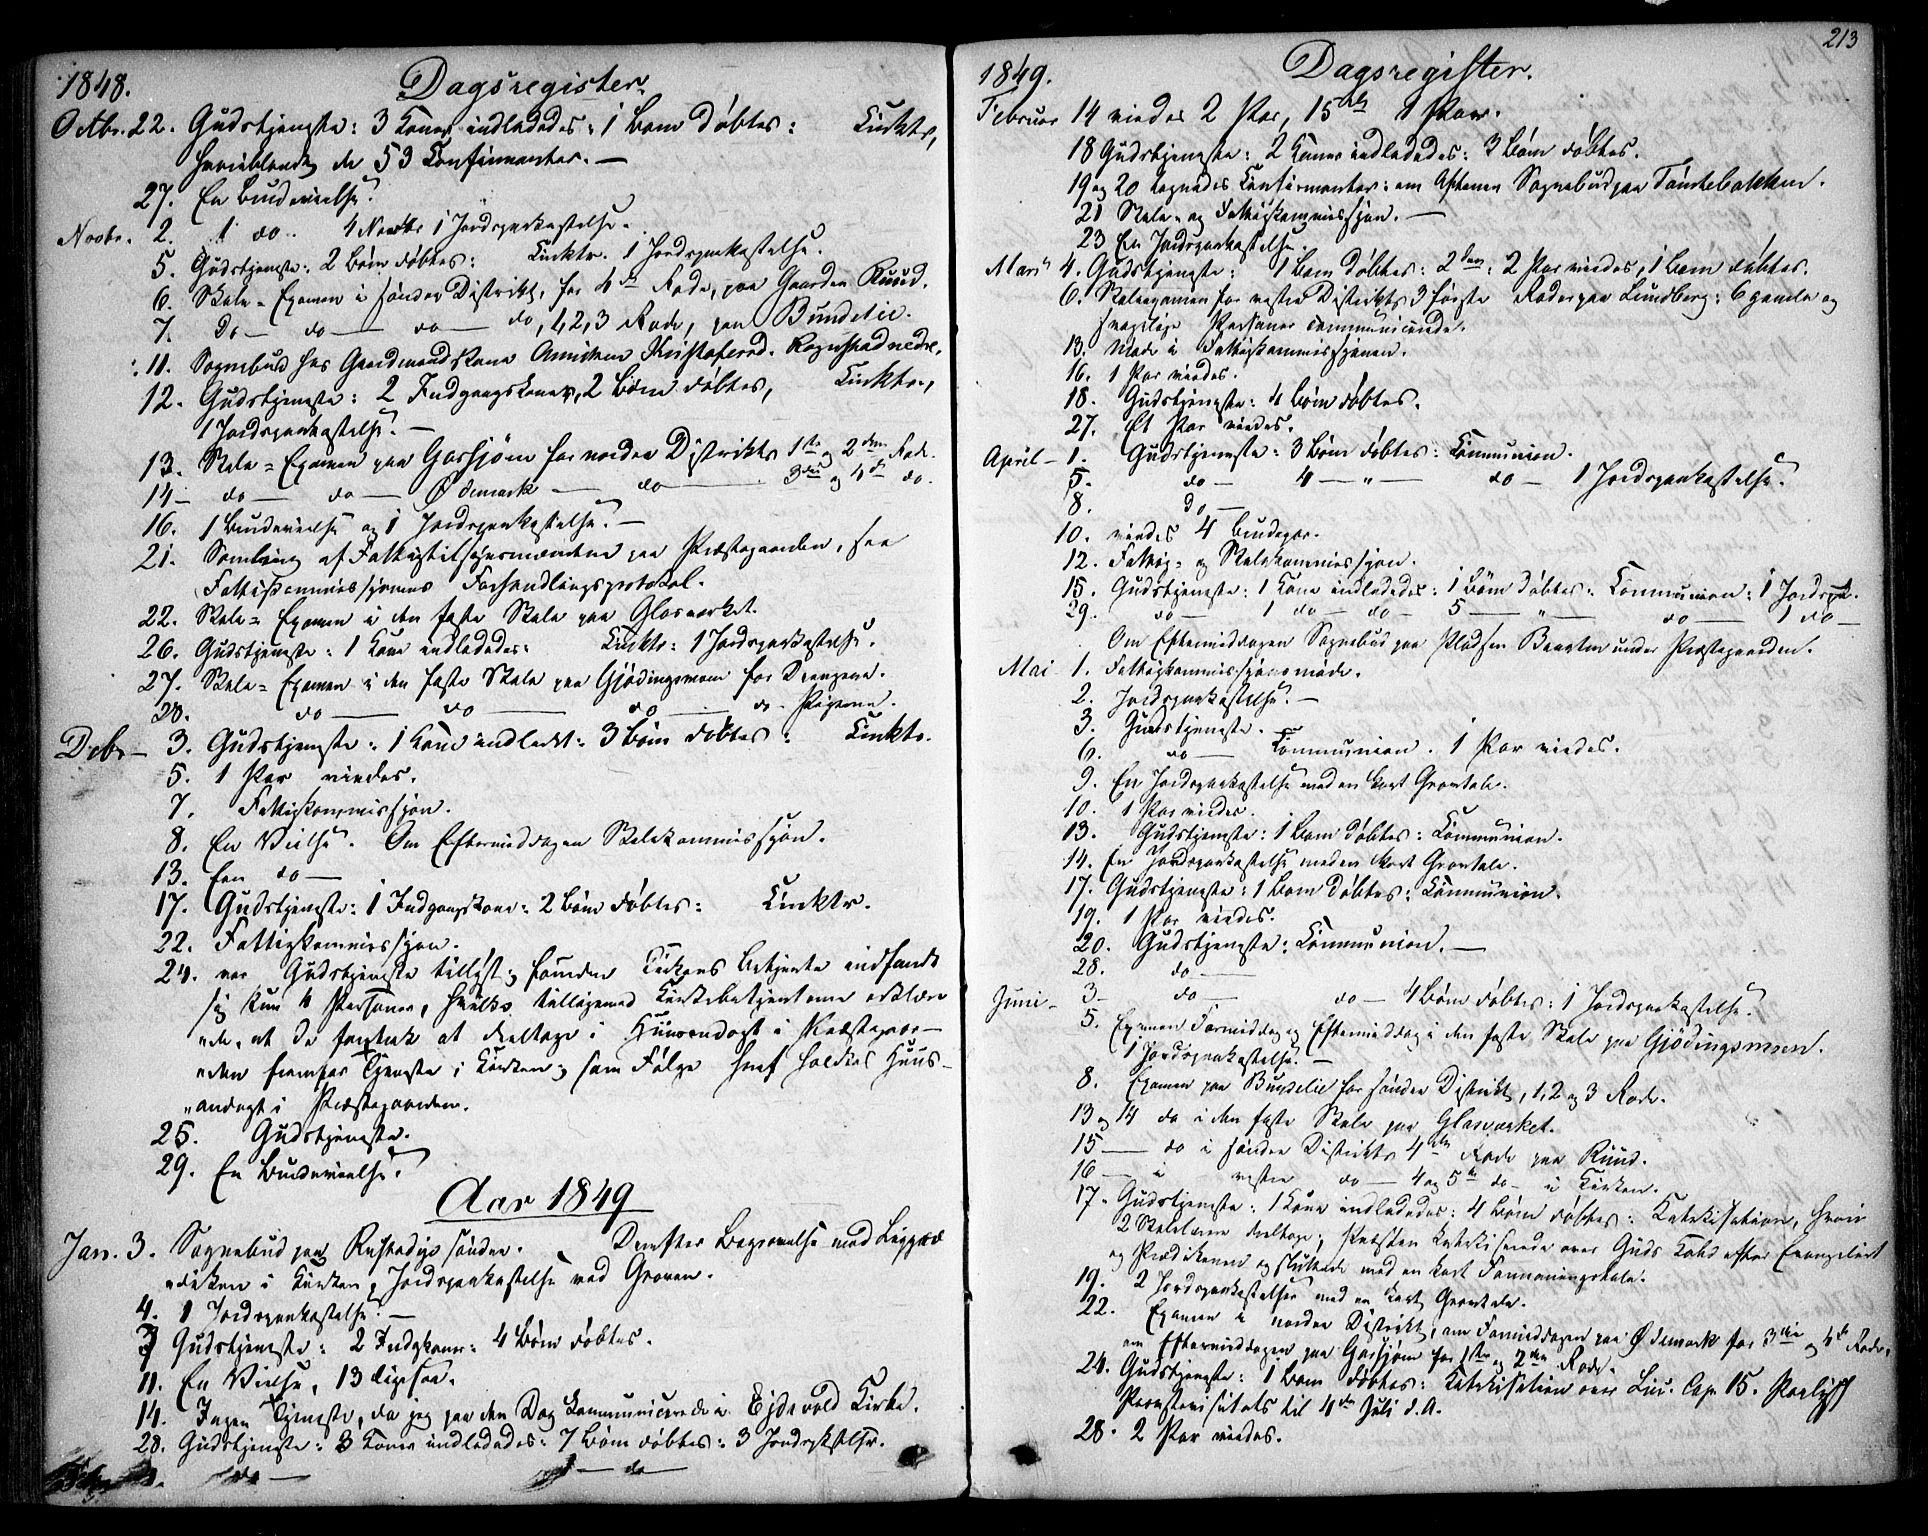 1848. Dagsregister.
Octbr. 22. Gudstjeneste: 3 Koner indlededes: 1 Barn døbtes: Cirktr,
hvoriblandt de 53 Confirmanter. —
27. En Brudevielse.
Novbr. 2. 1 do. 4 Novbr 1 Jordspaakastelse.
5. Gudstjeneste: 2 Børn døbtes: 1 Jordspaakastelse.
6. Skole-Examen i søndre Distrikt, for 4de Rode, paa Gaarden Ruud.
7. do — do — do — do, 1, 2, 3 Rode, paa Bundelie.
11. Sognebud hos Gaardmandskone Anniken Kristofersd. Ragnstad nedre.
12. Gudstjeneste: 2 Indgangskoner, 2 Børn døbtes,
1 Jordspaakastelse. —
13. Skole-Examen paa Garsjøen for nordre Distrikts 1ste og 2den Rode.
14 — do — do — Ødemark — do — 3die og 4de do.
16. 1 Brudevielse og 1 Jordspaakastelse. —
21. Samling af Fattigtilsynsmændene paa Præstegaarden, see
Fattigkommissjonens Forhandlingsprotokol.
22. Skole-Examen i den faste Skole paa Glasværket.
26. Gudstjeneste: 1 Kone indlededes: 1 Jordspaakastelse.
27. Skole-Examen i den faste Skole paa Gjødingsmoen for Drengene.
28. do — do — do — do. Pigerne.
Debr — 3. Gudstjeneste: 1 Kone indledet: 3 Børn døbtes:
5. 1 Par viedes.
7. Fattigkommissjon.
8. En Vielse. Om Eftermiddagen Skolekommissjon.
13. En do —
17. Gudstjeneste: 1 Indgangskone: 2 Børn døbtes:
22. Fattigkommissjon.
24. var Gudstjeneste tillyst; foruden Kirkens Betjente indfandt
sig kun 4 Personer, hvilke tilligemed Kirkebetjentene erklære-
ede, at de foretrak at deeltage i Huusandagt i Præstegaar-
den fremfor Tjeneste i Kirken; som Følge heraf holdtes Huus-
andagt i Præstegaarden.
25. Gudstjeneste.
29. En Brudevielse.
Aar 1849
Jan. 3. Sognebud paa Rustadgs søndre. Dernæst Begravelse med Liigpræ-
diken i Kirken, Jordspaakastelse ved Graven.
4. 1 Jordspaakastelse. —
7 Gudstjeneste: 2 Indgkoner: 4 Børn døbtes.
11. En Vielse, 13 ligesaa.
14. Ingen Tjeneste, da jeg paa den Dag kommunicerede i Ejdsvold Kirke.
28. Gudstjeneste: 3 Koner indledes: 7 Børn døbtes: 3 Jordspkstlsr.
do — do —
213
1849. Dagsregister.
Februar 14 viedes 2 Par, 15de 1 Par.
18 Gudstjeneste: 2 Koner indledede: 3 Børn døbtes.
19 og 20 tegnedes Konfirmanter: om Aftenen Sognebud paa Tømtebakken.
21 Skole- og Fattigkommissjon. —
23 En Jordspaakastelse.
Marts 4. Gudstjeneste: 1 Barn døbtes: 2den: 2 Par viedes, 1 Barn døbtes.
6. Skoleexamen for vestre Distrikts 3 første Roder paa Lundberg: 6 gamle og
svagelige Personer communicerede.
13. Møde i Fattigkommissjonen.
16. 1 Par viedes.
18. Gudstjeneste: 4 Børn døbtes.
27. Et Par viedes.
April — 1. Gudstjeneste: 3 Børn døbtes: Kommunion.
5. do — 4 — " — do — 1 Jordspaakastelse.
8. do —
10. viedes 4 Brudepar.
12. Fattig- og Skolekommissjon.
15. Gudstjeneste: 1 Kone indledede: 1 Børn døbtes: Kommunion: 1 Jordspk.
29. do — 1 do — do — 5 — " do — 1 do —
Om Eftermiddagen Sognebud paa Pladsen Braaten under Præstegaarden.
Mai — 1. Fattigkommissjonsmøde.
2. Jordspaakastelse. —
3. Gudstjeneste.
6. do — Kommunion. 1 Par viedes.
9. En Jordspaakastelse med en kort Gravtale.
10. 1 Par viedes.
13. Gudstjeneste: 1 Barn døbtes: Kommunion.
14. En Jordspaakastelse med en kort Gravtale.
17. Gudstjeneste: 1 Barn døbtes: Kommunion.
19. 1 Par viedes.
20. Gudstjeneste: Kommunion. —
28. do —
Juni — 3 — do — do — 4 Børn døbtes: 1 Jordspaakastelse.
5. Examen Formiddag og Eftermiddag i den faste Skole paa Gjødingsmoen.
1 Jordspaakastelse. —
8. Examen paa Bundelie for søndre Distrikt, 1, 2 og 3 Rode.
13 og 14 do i den faste Skole paa Glasværket.
15 — do i søndre Distrikts 4de Rode paa Ruud.
16 — i vestre do — 4 og 5te do — i Kirken.
17. Gudstjeneste: 1 Kone indledede: 4 Børn døbtes: Katekisation, hvori
2 Skolelærere deeltoge; Præsten katekiserede over Guds Kald efter Evangeliet
og Prædikenen og sluttede med en kort Formaningstale.
19. 2 Jordspaakastelser med en kort Gravtale.
22. Examen i nordre Distrikt, om Formiddagen paa Ødemark for 3die og 4de Rode,
om Eftermiddagen paa Garsjøen for 1ste og 2den Rode.
24. Gudstjeneste: 1 Barn døbtes: Katekisation over Luc. Cap. 15.
Provstevisitats til 4de Juli d. A.
28. 2 Par viedes.